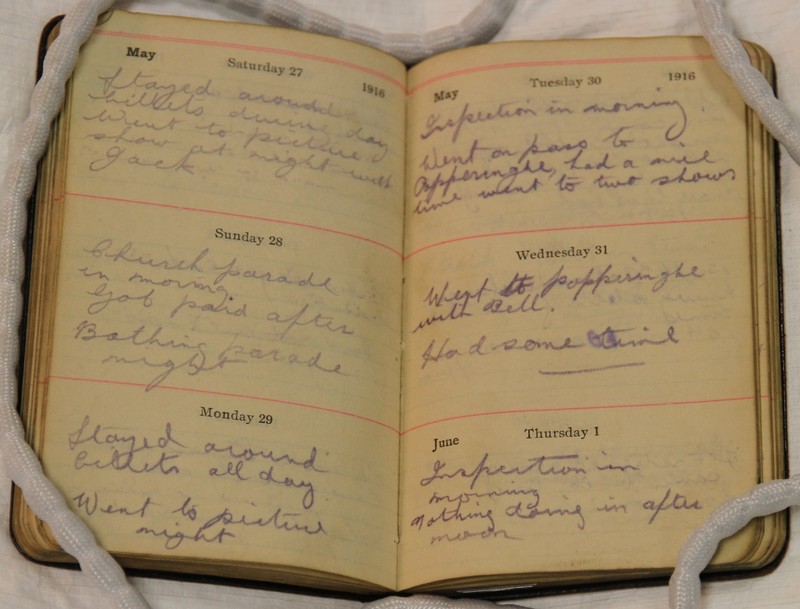 May Saturday 27 1916
Stayed around
billets during day
Went to picture
show at night with
Jack
Sunday 28
Church parade
in morning
Got paid after
Bathing parade
night
Monday 29
Stayed around
billets all day
Went to picture
night
May Tuesday 30 1916
Inspection in morning.
Went on pass to
Popperinghe, had a nice
time went to two shows
Wednesday 31
Went to popperinghe
with Bell.
Had some time
June Thursday 1
Inspection in
morning
Nothing doing in after
noon